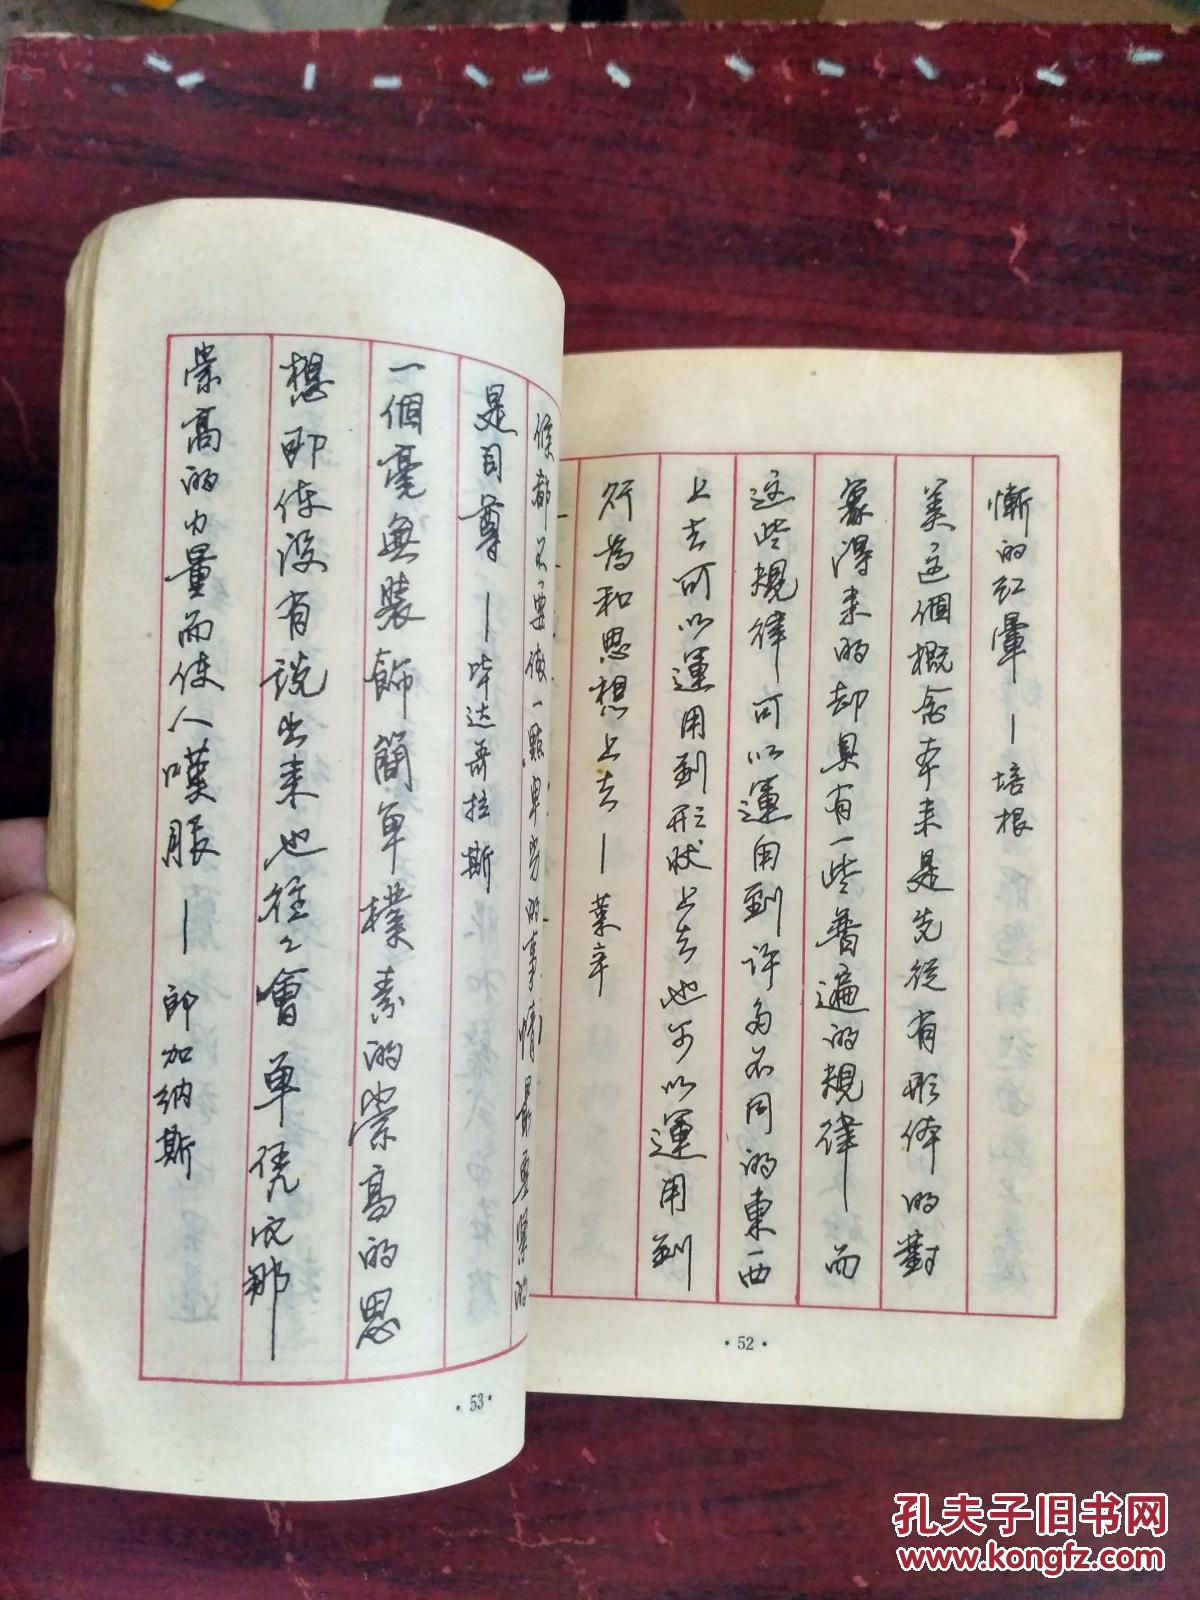 慚的紅暈 — 培根
美这個概念本来是先從有形体的對
象得来的却具有一些普遍的規律 而
这些規律可以運用到許多不同的東西
上去可以運用到形狀上去也可以運用到
行為和思想上去 — 葉辛
·52·
條都不要做一點卑劣的事情最要緊的
是自尊 — 毕达哥拉斯
一個毫無裝飾簡單樸素的崇高的思
想即使没有説出来也往々會单凭它那
崇高的力量而使人嘆服 — 郎加纳斯
·53·
孔夫子旧书网
www.kongfz.com